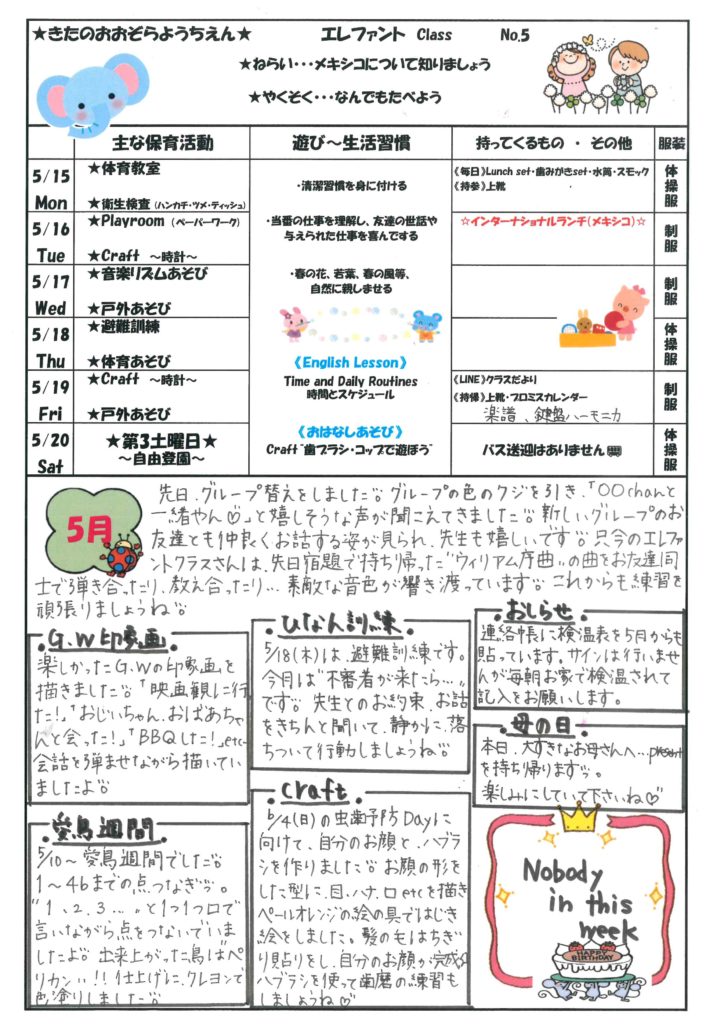 ★きたのおおぞらようちえん★ エレファント Class No.5
★ねらい・・・メキシコについて知りましょう
★やくそく・・・なんでもたべよう
主な保育活動 遊び～生活習慣 持ってくるもの ・ その他 服装
5/15 Mon
★体育教室
★衛生検査（ハンカチ・ツメ・ティッシュ）
・清潔習慣を身に付ける
《毎日》Lunch set・歯みがきset・水筒・スモック
《持参》上靴
体操服
5/16 Tue
★Playroom （ペーパーワーク）
★Craft ～時計～
・当番の仕事を理解し、友達の世話や
与えられた仕事を喜んでする
☆インターナショナルランチ(メキシコ)☆
制服
5/17 Wed
★音楽リズムあそび
★戸外あそび
・春の花、若葉、春の風等、
自然に親しませる
制服
5/18 Thu
★避難訓練
★体育あそび
《English Lesson》
Time and Daily Routines
時間とスケジュール
体操服
5/19 Fri
★Craft ～時計～
★戸外あそび
《LINE》クラスだより
《持帰》上靴・プロミスカレンダー
楽譜、鍵盤ハーモニカ
制服
5/20 Sat
★第3土曜日★
～自由登園～
《おはなしあそび》
Craft“歯ブラシ・コップで遊ぼう”
バス送迎はありません
体操服
5月
先日、グループ替えをしました。グループの色のクジを引き、「〇〇chanと
一緒やん♡」と嬉しそうな声が聞こえてきました。新しいグループのお
友達とも仲良くお話する姿が見られ、先生も嬉しいです。只今のエレファ
ントクラスさんは、先日宿題で持ち帰った“ウィリアム序曲”の曲をお友達同
士で弾き合ったり、教え合ったり…素敵な音色が響き渡っています。これからも練習を
頑張りましょうね。
G.W印象画
楽しかったG.Wの印象画を
描きました。「映画観に行っ
た!」「おじいちゃん、おばあちゃ
んと会った!」「BBQした!」etc
会話を弾ませながら描いてい
ましたよ。
ひなん訓練
5/18(木)は、避難訓練です。
今月は“不審者が来たら…”
です。先生とのお約束、お話
をきちんと聞いて、静かに、落
ちついて行動しましょうね。
おしらせ
連絡帳に検温表を5月からも
貼っています。サインは行いませ
んが毎朝お家で検温されて
記入をお願いします。
母の日
本日、大すきなお母さんへ…present
を持ち帰ります。
楽しみにしていて下さいね♡
愛鳥週間
5/10～愛鳥週間でした。
1～46までの点つなぎ。
“1、2、3…”と1つ1つ口で
言いながら点をつないでいま
したよ。出来上がった鳥は“ペ
リカン”!!仕上げに、クレヨンで
色塗りしました。
Craft
6/4(日)の虫歯予防Dayに
向けて、自分のお顔と、ハブラ
シを作りました。お顔の形を
した型に、目、ハナ、口etcを描き
ペールオレンジの絵の具ではじき
絵をしました。髪の毛はちぎ
り貼りをし、自分のお顔が完成。
ハブラシを使って歯磨の練習も
しましょうね♡
Nobody
in this
week
HAPPY
BIRTHDAY